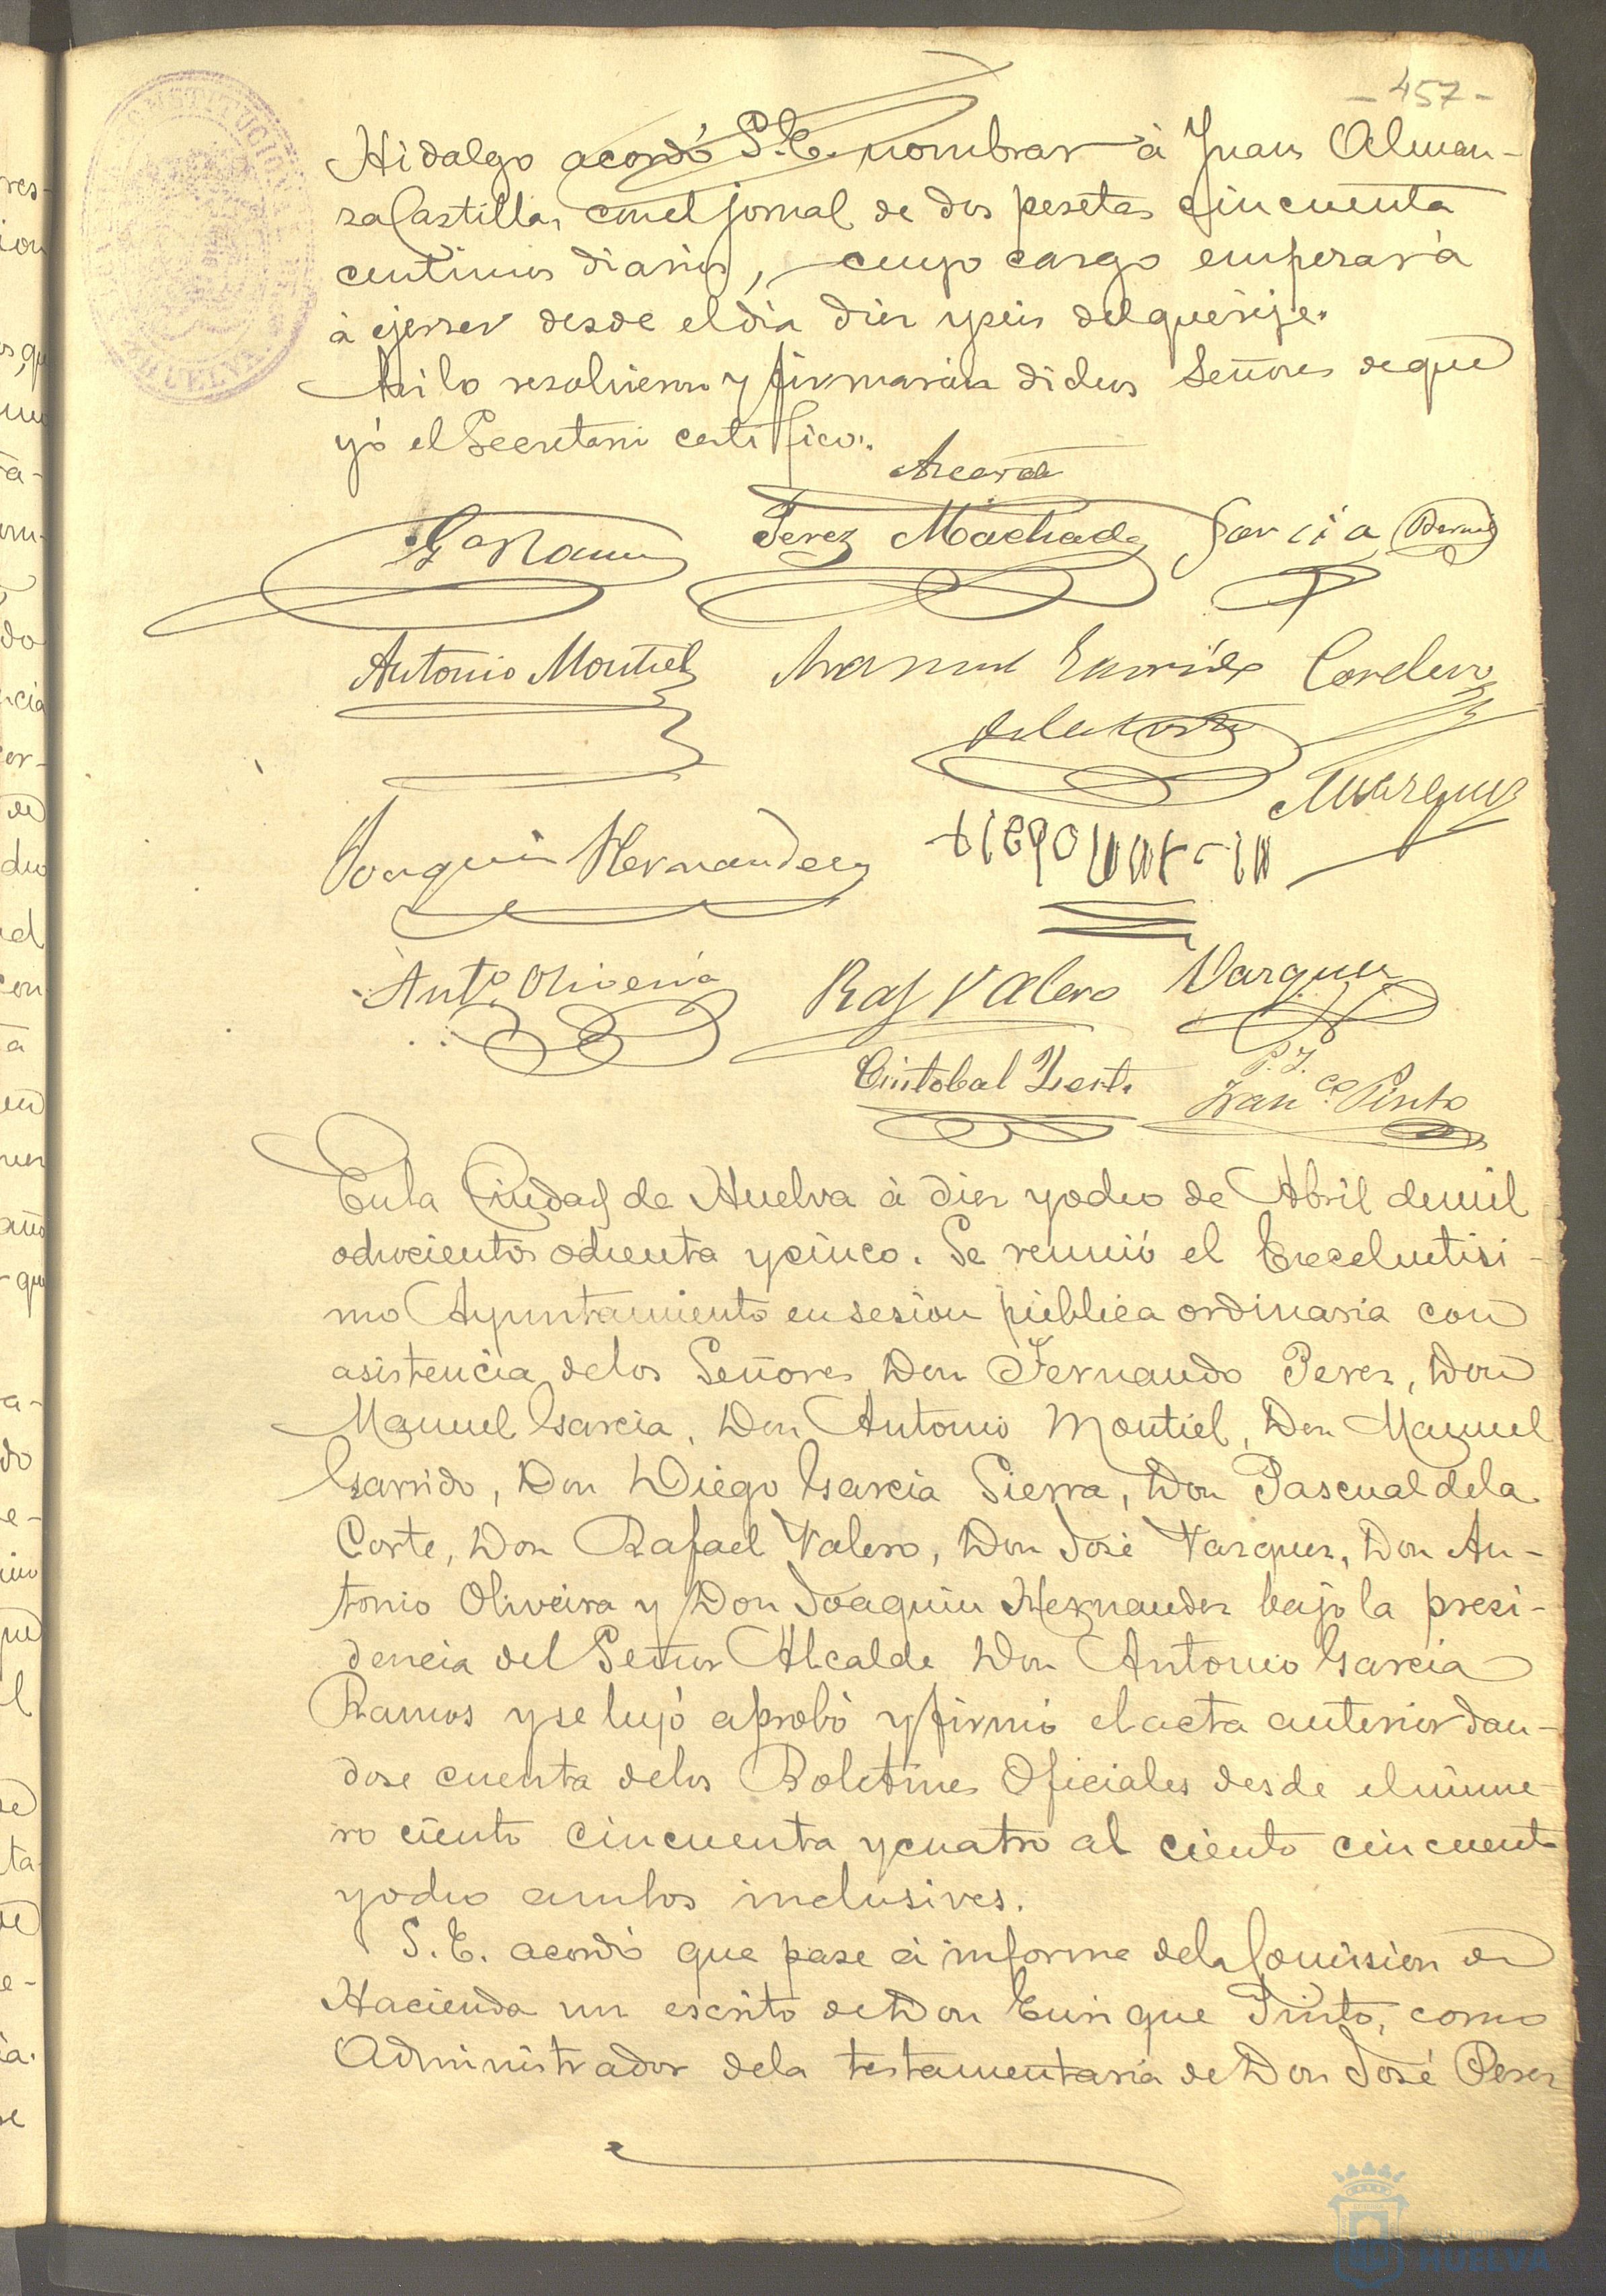 - 457 -
Hidalgo acordó S.E. nombrar à Juan Alman-
sa Castilla, con el jornal de dos pesetas cincuenta
centimos diarios, cuyo cargo emperará
à ejerser desde el dia dier y seis del que rije.
Asi lo resolvieron y firmarán dichos Señores de que
yó el Secretario certifico.
G.ª Ramos
Perez Machado
Garcia
Antonio Montiel
Manuel Garrido
Cordero
de la Corte
Marquez
Joaquin Hernandez
Ant.º Oliveira
Raf Valero
Vazquez
P. I.
Cristobal
Fran.co Pinto
En la Ciudad de Huelva à dier y ocho de Abril de mil
ochocientos ochenta y cinco. Se reunió el Excelentisi-
mo Ayuntamiento en sesion pública ordinaria con
asistencia de los Señores Don Fernando Perez, Don
Manuel Garcia, Don Antonio Montiel, Don Manuel
Garrido, Don Diego Garcia Sierra, Don Pascual de la
Corte, Don Rafael Valero, Don José Vazquez, Don An-
tonio Oliveira y Don Joaquin Hernander bajo la presi-
dencia del Señor Alcalde Don Antonio Garcia
Ramos y se leyó aprobó y firmó el acta anterior dan-
dose cuenta de los Boletines Oficiales desde el núme-
ro ciento cincuenta y cuatro al ciento cincuenta
y ocho ambos inclusives.
S.E. acordó que pase à informe de la Comision de
Hacienda un escrito de Don Enrique Pinto, como
Administrador de la testamentaria de Don José Perez
Ayuntamiento de
HUELVA